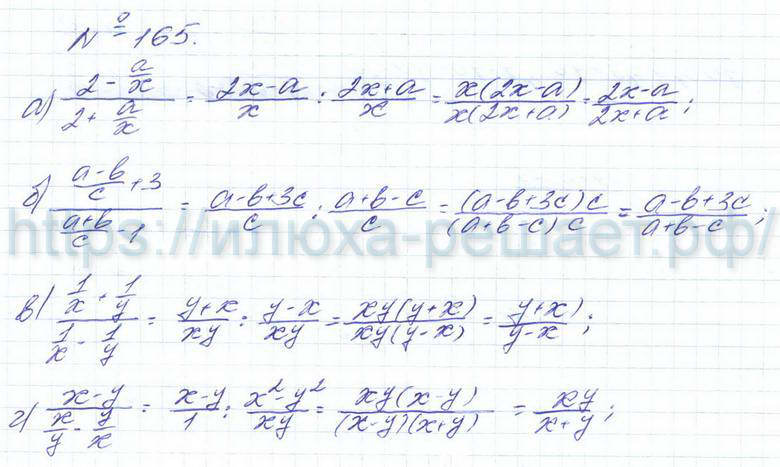 № 165.
а) (2 - a/x)/(2 + a/x) = (2x-a)/x : (2x+a)/x = x(2x-a)/x(2x+a) = (2x-a)/(2x+a);
б) ((a-b)/c + 3)/((a+b)/c - 1) = (a-b+3c)/c : (a+b-c)/c = (a-b+3c)c/(a+b-c)c = (a-b+3c)/(a+b-c);
https://илюха-решает.рф/
в) (1/x + 1/y)/(1/x - 1/y) = (y+x)/xy : (y-x)/xy = xy(y+x)/xy(y-x) = (y+x)/(y-x);
г) (x-y)/(x/y - y/x) = (x-y)/1 : (x²-y²)/xy = xy(x-y)/(x-y)(x+y) = xy/(x+y);